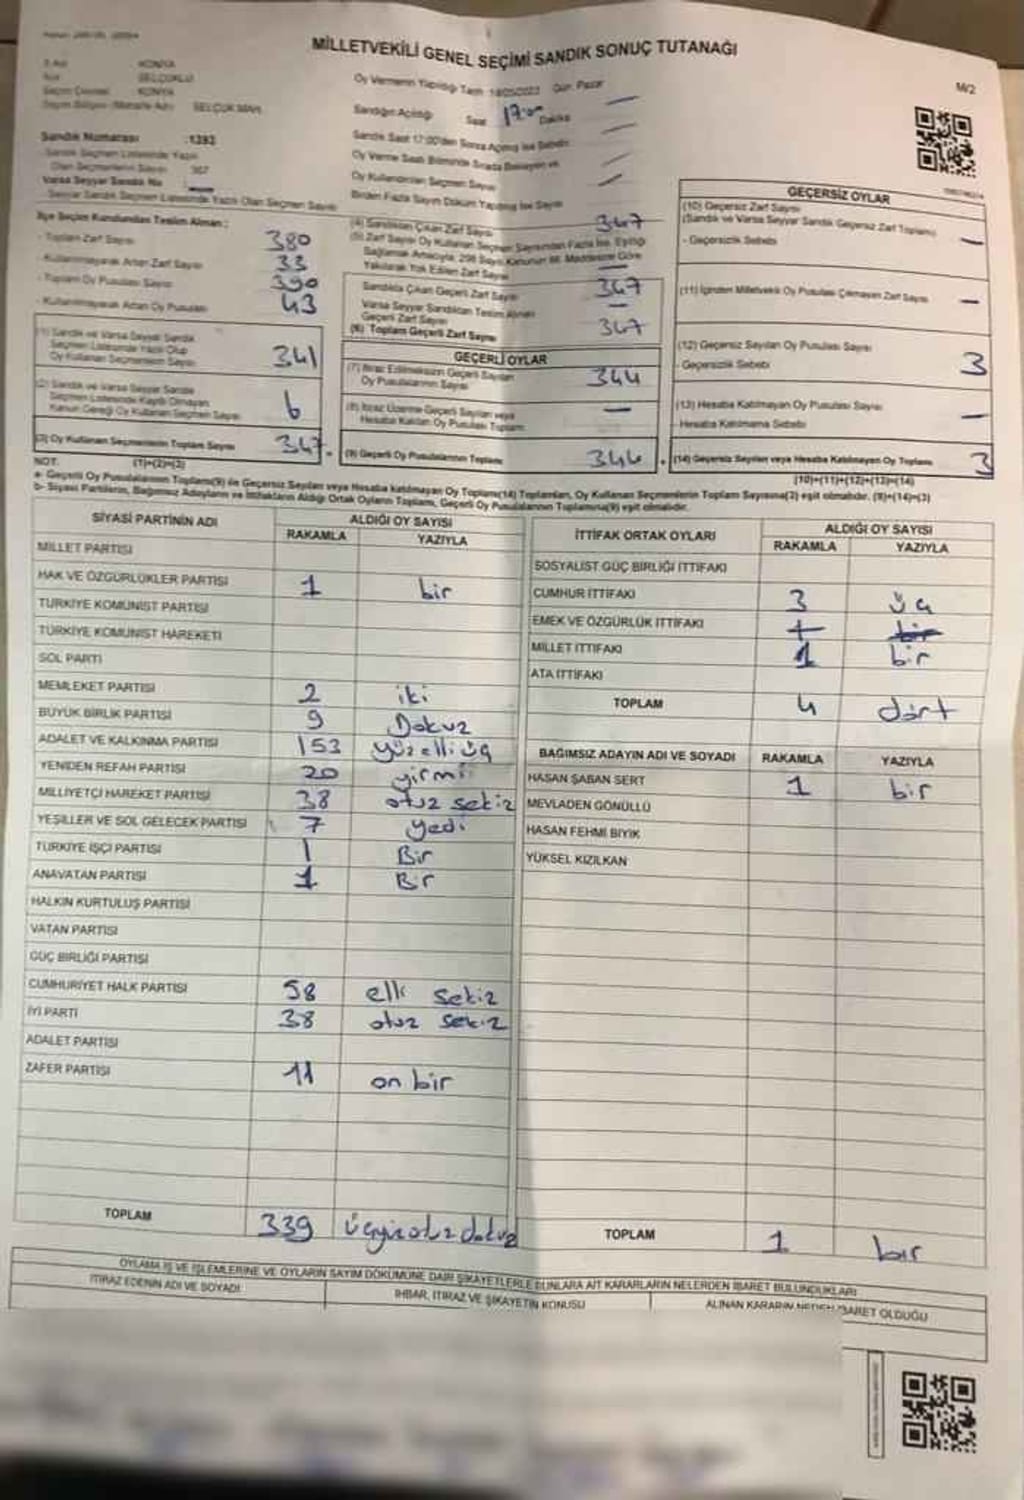 MİLLETVEKİLİ GENEL SEÇİMİ SANDIK SONUÇ TUTANAĞI
M/2
KONYA
SELÇUKLU
KONYA
SELÇUK MAH.
Oy Vermenin Yapıldığı Tarih Gün: Pazar
Sandığın Açıldığı Saat 17:00 Dakika
Sandık Numarası :1393
Sandık Saat 17:00'den Sonra Açılmış İse Sebebi
Varsa Seyyar Sandık No
Seyyar Sandık Seçmen Listesinde Yazılı Olan Seçmenlerin Sayısı
Birden Fazla Sayım Döküm Yapılmış İse Sayısı
İlçe Seçim Kurulundan Teslim Alınan :
- Toplam Zarf Sayısı 380
- Kullanılmayarak Artan Zarf Sayısı 33
- Toplam Oy Pusulası Sayısı 390
- Kullanılmayarak Artan Oy Pusulası 43
(1) Sandık ve Varsa Seyyar Sandık
Seçmen Listesinde Yazılı Olup
Oy Kullanan Seçmenlerin Sayısı 341
(2) Sandık ve Varsa Seyyar Sandık
Seçmen Listesinde Kayıtlı Olmayan
Kanun Gereği Oy Kullanan Seçmen Sayısı 6
(3) Oy Kullanan Seçmenlerin Toplam Sayısı 347
(1)+(2)=(3)
(4) Sandıktan Çıkan Zarf Sayısı 347
(5) Zarf Sayısı Oy Kullanan Seçmen Sayısından Fazla İse, Eşitliği
Sağlamak Amacıyla; 298 Sayılı Kanunun 98. Maddesine Göre
Yakılarak Yok Edilen Zarf Sayısı —
Sandıkta Çıkan Geçerli Zarf Sayısı 347
Varsa Seyyar Sandıktan Teslim Alınan
Geçerli Zarf Sayısı —
(6) Toplam Geçerli Zarf Sayısı 347
GEÇERLİ OYLAR
(7) İtiraz Edilmeksizin Geçerli Sayılan
Oy Pusulalarının Sayısı 344
(8) İtiraz Üzerine Geçerli Sayılan veya
Hesaba Katılan Oy Pusulası Toplamı —
(9) Geçerli Oy Pusulalarının Toplamı 344
GEÇERSİZ OYLAR
(10) Geçersiz Zarf Sayısı
(Sandık ve Varsa Seyyar Sandık Geçersiz Zarf Toplamı)
- Geçersizlik Sebebi —
(11) İçinden Milletvekili Oy Pusulası Çıkmayan Zarf Sayısı —
(12) Geçersiz Sayılan Oy Pusulası Sayısı
- Geçersizlik Sebebi 3
(13) Hesaba Katılmayan Oy Pusulası Sayısı
- Hesaba Katılmama Sebebi —
(14) Geçersiz Sayılan veya Hesaba Katılmayan Oy Toplamı 3
(10)+(11)+(12)+(13)=(14)
NOT:
a- Geçerli Oy Pusulalarının Toplamı(9) ile Geçersiz Sayılan veya Hesaba katılmayan Oy Toplamı(14) Toplamları, Oy Kullanan Seçmenlerin Toplam Sayısına(3) eşit olmalıdır. (9)+(14)=(3)
b- Siyasi Partilerin, Bağımsız Adayların ve İttifakların Aldığı Ortak Oyların Toplamı, Geçerli Oy Pusulalarının Toplamına(9) eşit olmalıdır.
SİYASİ PARTİNİN ADI ALDIĞI OY SAYISI
RAKAMLA YAZIYLA
MİLLET PARTİSİ
HAK VE ÖZGÜRLÜKLER PARTİSİ 1 bir
TÜRKİYE KOMÜNİST PARTİSİ
TÜRKİYE KOMÜNİST HAREKETİ
SOL PARTİ
MEMLEKET PARTİSİ 2 iki
BÜYÜK BİRLİK PARTİSİ 9 Dokuz
ADALET VE KALKINMA PARTİSİ 153 yüzelliüç
YENİDEN REFAH PARTİSİ 20 yirmi
MİLLİYETÇİ HAREKET PARTİSİ 38 otuz sekiz
YEŞİLLER VE SOL GELECEK PARTİSİ 7 yedi
TÜRKİYE İŞÇİ PARTİSİ 1 Bir
ANAVATAN PARTİSİ 1 Bir
HALKIN KURTULUŞ PARTİSİ
VATAN PARTİSİ
GÜÇ BİRLİĞİ PARTİSİ
CUMHURİYET HALK PARTİSİ 58 elli sekiz
İYİ PARTİ 38 otuz sekiz
ADALET PARTİSİ
ZAFER PARTİSİ 11 on bir
TOPLAM 339 üçyüzotuzdokuz
İTTİFAK ORTAK OYLARI ALDIĞI OY SAYISI
RAKAMLA YAZIYLA
SOSYALİST GÜÇ BİRLİĞİ İTTİFAKI
CUMHUR İTTİFAKI 3 üç
EMEK VE ÖZGÜRLÜK İTTİFAKI 1 bir
MİLLET İTTİFAKI 1 bir
ATA İTTİFAKI
TOPLAM 4 dört
BAĞIMSIZ ADAYIN ADI VE SOYADI RAKAMLA YAZIYLA
HASAN ŞABAN SERT 1 bir
MEVLADEN GÖNÜLLÜ
HASAN FEHMİ BIYIK
YÜKSEL KIZILKAN
TOPLAM 1 bir
OYLAMA İŞ VE İŞLEMLERİNE VE OYLARIN SAYIM DÖKÜMÜNE DAİR ŞİKAYETLERLE BUNLARA AİT KARARLARIN NELERDEN İBARET BULUNDUKLARI
İTİRAZ EDENİN ADI VE SOYADI İHBAR, İTİRAZ VE ŞİKAYETİN KONUSU ALINAN KARARIN NEDEN İBARET OLDUĞU